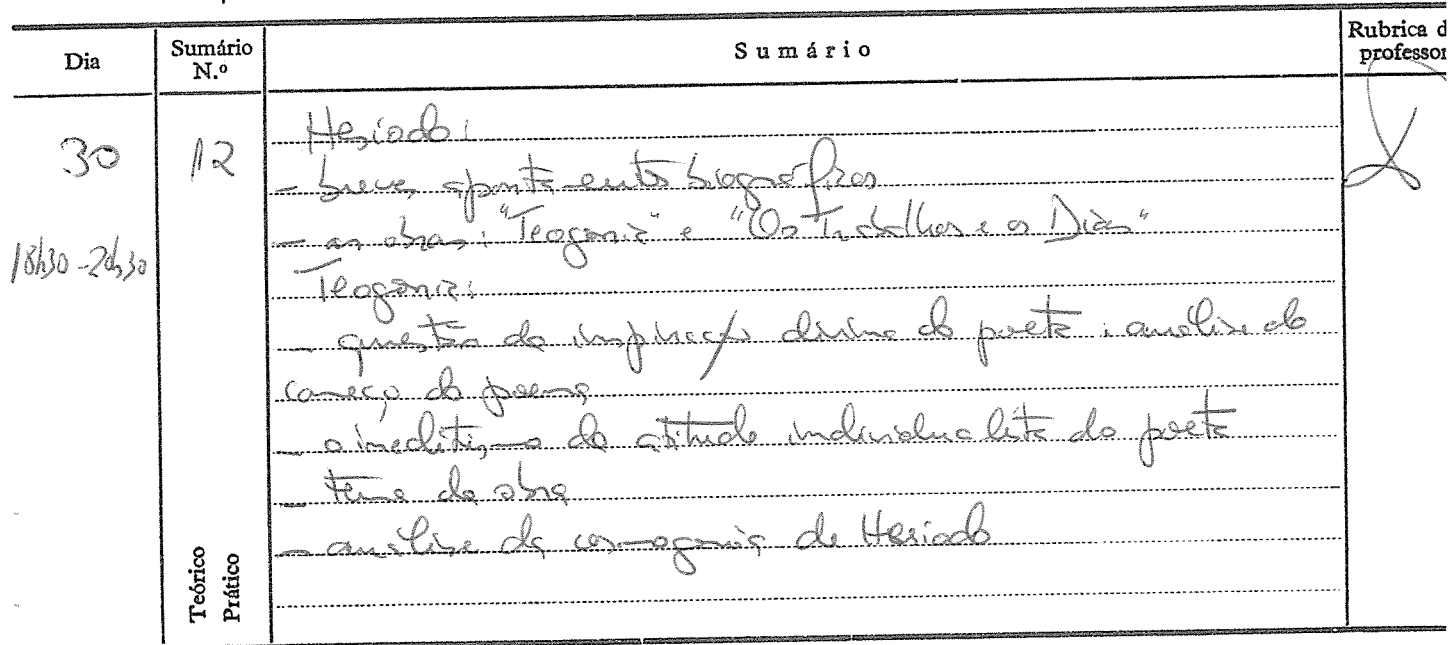 Dia
Sumário N.º
Sumário
Rubrica d
professor
30
12
18h30-20h30
Hesíodo:
- breves apontamentos biográficos
- as obras: "Teogonia" e "Os Trabalhos e os Dias"
Teogonia:
- questão da inspiração divina do poeta: análise do
começo do poema
- o ineditismo da atitude individualista do poeta
- tema da obra
- análise da cosmogonia de Hesíodo
Teórico
Prático